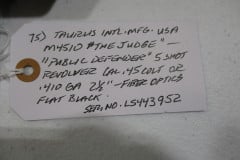 75) TAURUS INTL. MFG. USA
M4510 #THE JUDGE" —
"PUBLIC DEFENDER" 5 SHOT
REVOLVER CAL. .45 COLT OR
.410 GA 2½" — FIBER OPTICS
FLAT BLACK.
SER. NO. LS443952